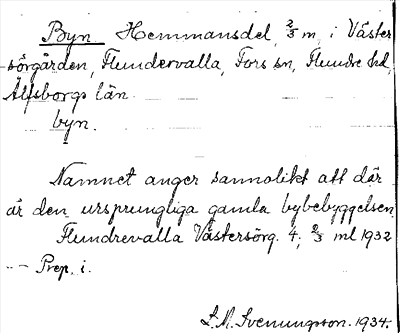 Byn Hemmansdel, 2/3 m, i Väster
sörgården, Flundervalla, Fors sn, Flundre hd,
Älfsborgs län
byn.
Namnet anger sannolikt att där
är den ursprungliga gamla bybebyggelsen
Flundrevalla Västersörg. 4, 2/3 mtl 1932
-- Prep. i.
L.M. Svenungson. 1934.